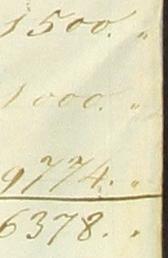 1500. "
1000. "
9774. "
6378. "